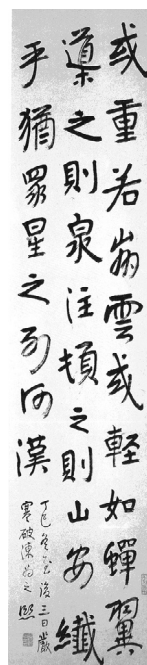 或重若崩雲或輕如蟬翼
導之則泉注頓之則山安纖
乎猶眾星之列河漢
丁巳冬至後三日嚴
寒破凍為之熙